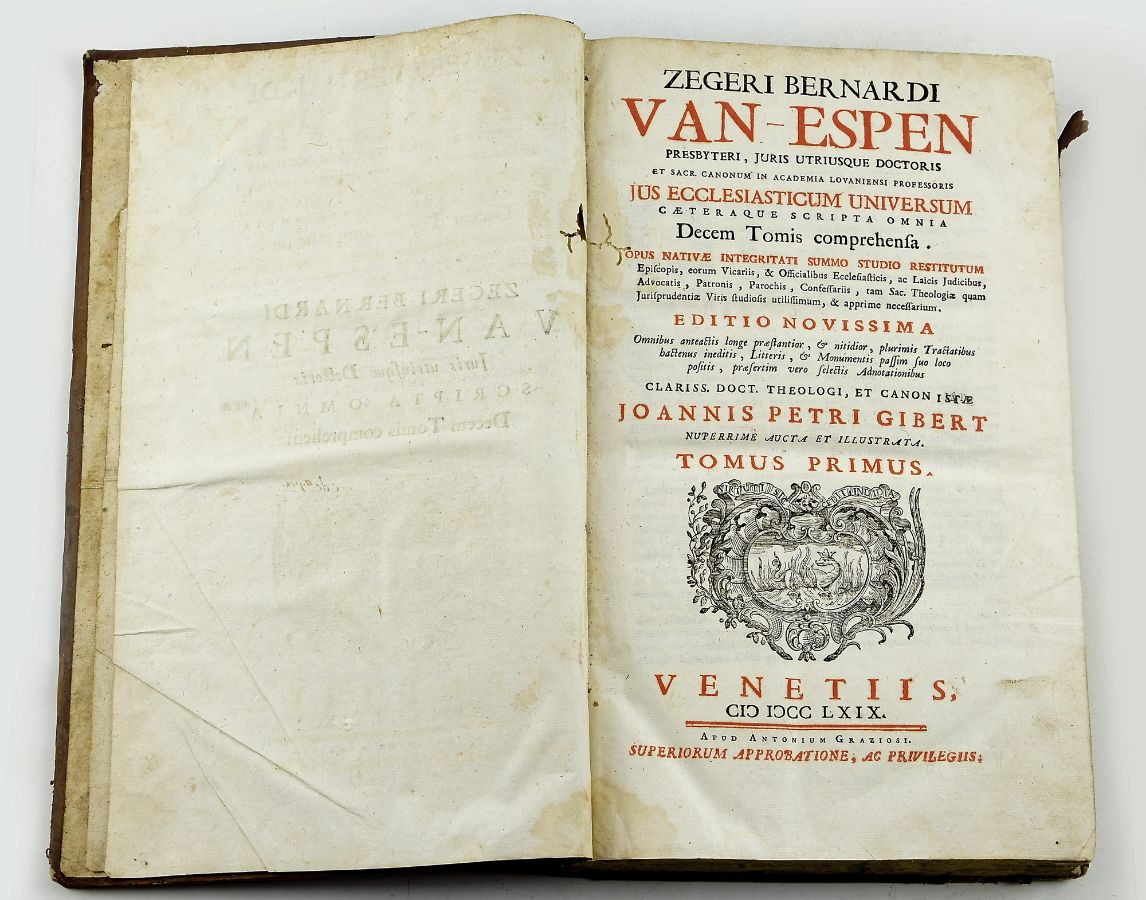 ZEGERI BERNARDI
VAN-ESPEN
Juris utriusque Doctoris
SCRIPTA OMNIA
Decem Tomis comprehensa
ZEGERI BERNARDI
VAN-ESPEN
PRESBYTERI, JURIS UTRIUSQUE DOCTORIS
ET SACR. CANONUM IN ACADEMIA LOVANIENSI PROFESSORIS
JUS ECCLESIASTICUM UNIVERSUM
CÆTERAQUE SCRIPTA OMNIA
Decem Tomis comprehenſa.
OPUS NATIVÆ INTEGRITATI SUMMO STUDIO RESTITUTUM
Epiſcopis, eorum Vicariis, & Officialibus Eccleſiaſticis, ac Laicis Judicibus,
Advocatis, Patronis, Parochis, Confeſſariis, tam Sac. Theologiæ quam
Juriſprudentiæ Viris ſtudioſis utiliſſimum, & apprime neceſſarium.
EDITIO NOVISSIMA
Omnibus anteactis longe præſtantior, & nitidior, plurimis Tractatibus
hactenus ineditis, Litteris, & Monumentis paſſim ſuo loco
poſitis, præſertim vero ſelectis Adnotationibus
CLARISS. DOCT. THEOLOGI, ET CANONISTÆ
JOANNIS PETRI GIBERT
NUPERRIME AUCTA ET ILLUSTRATA.
TOMUS PRIMUS.
VENETIIS,
CIↃ IↃCC LXIX.
APUD ANTONIUM GRAZIOSI.
SUPERIORUM APPROBATIONE, AC PRIVILEGIIS;